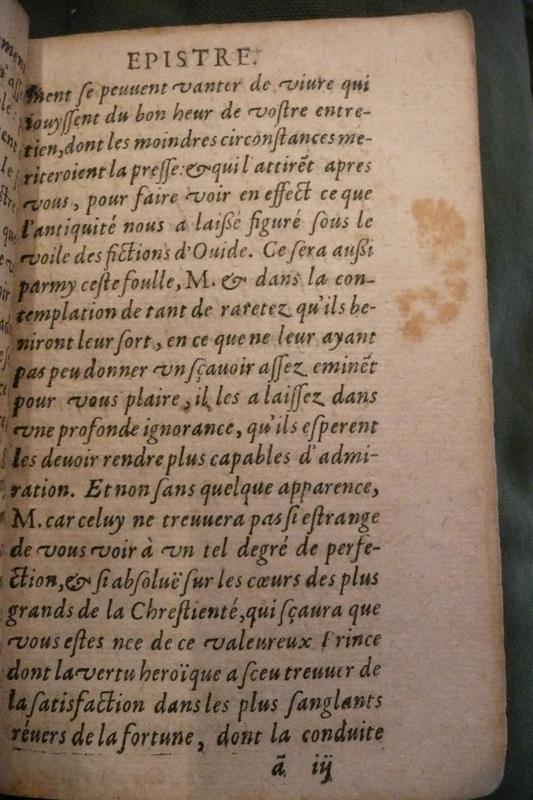 EPISTRE.
ment ſe peuuent vanter de viure qui
iouyſſent du bon heur de voſtre entre-
tien, dont les moindres circonſtances me-
riteroient la preſſe: & qui l'attirẽt apres
vous, pour faire voir en effect ce que
l'antiquité nous a laiſſé figuré ſous le
voile des fictions d'Ouide. Ce ſera auſſi
parmy ceſte foulle, M. & dans la con-
templation de tant de raretez qu'ils be-
niront leur ſort, en ce que ne leur ayant
pas peu donner vn ſçauoir aſſez eminẽt
pour vous plaire, il les a laiſſez dans
vne profonde ignorance, qu'ils eſperent
les deuoir rendre plus capables d'admi-
ration. Et non ſans quelque apparence,
M. car celuy ne treuuera pas ſi eſtrange
de vous voir à vn tel degré de perfe-
ction, & ſi abſoluë ſur les cœurs des plus
grands de la Chreſtienté, qui ſçaura que
vous eſtes nee de ce valeureux Prince
dont la vertu heroïque a ſceu treuuer de
la ſatisfaction dans les plus ſanglants
réuers de la fortune, dont la conduite
ã iij